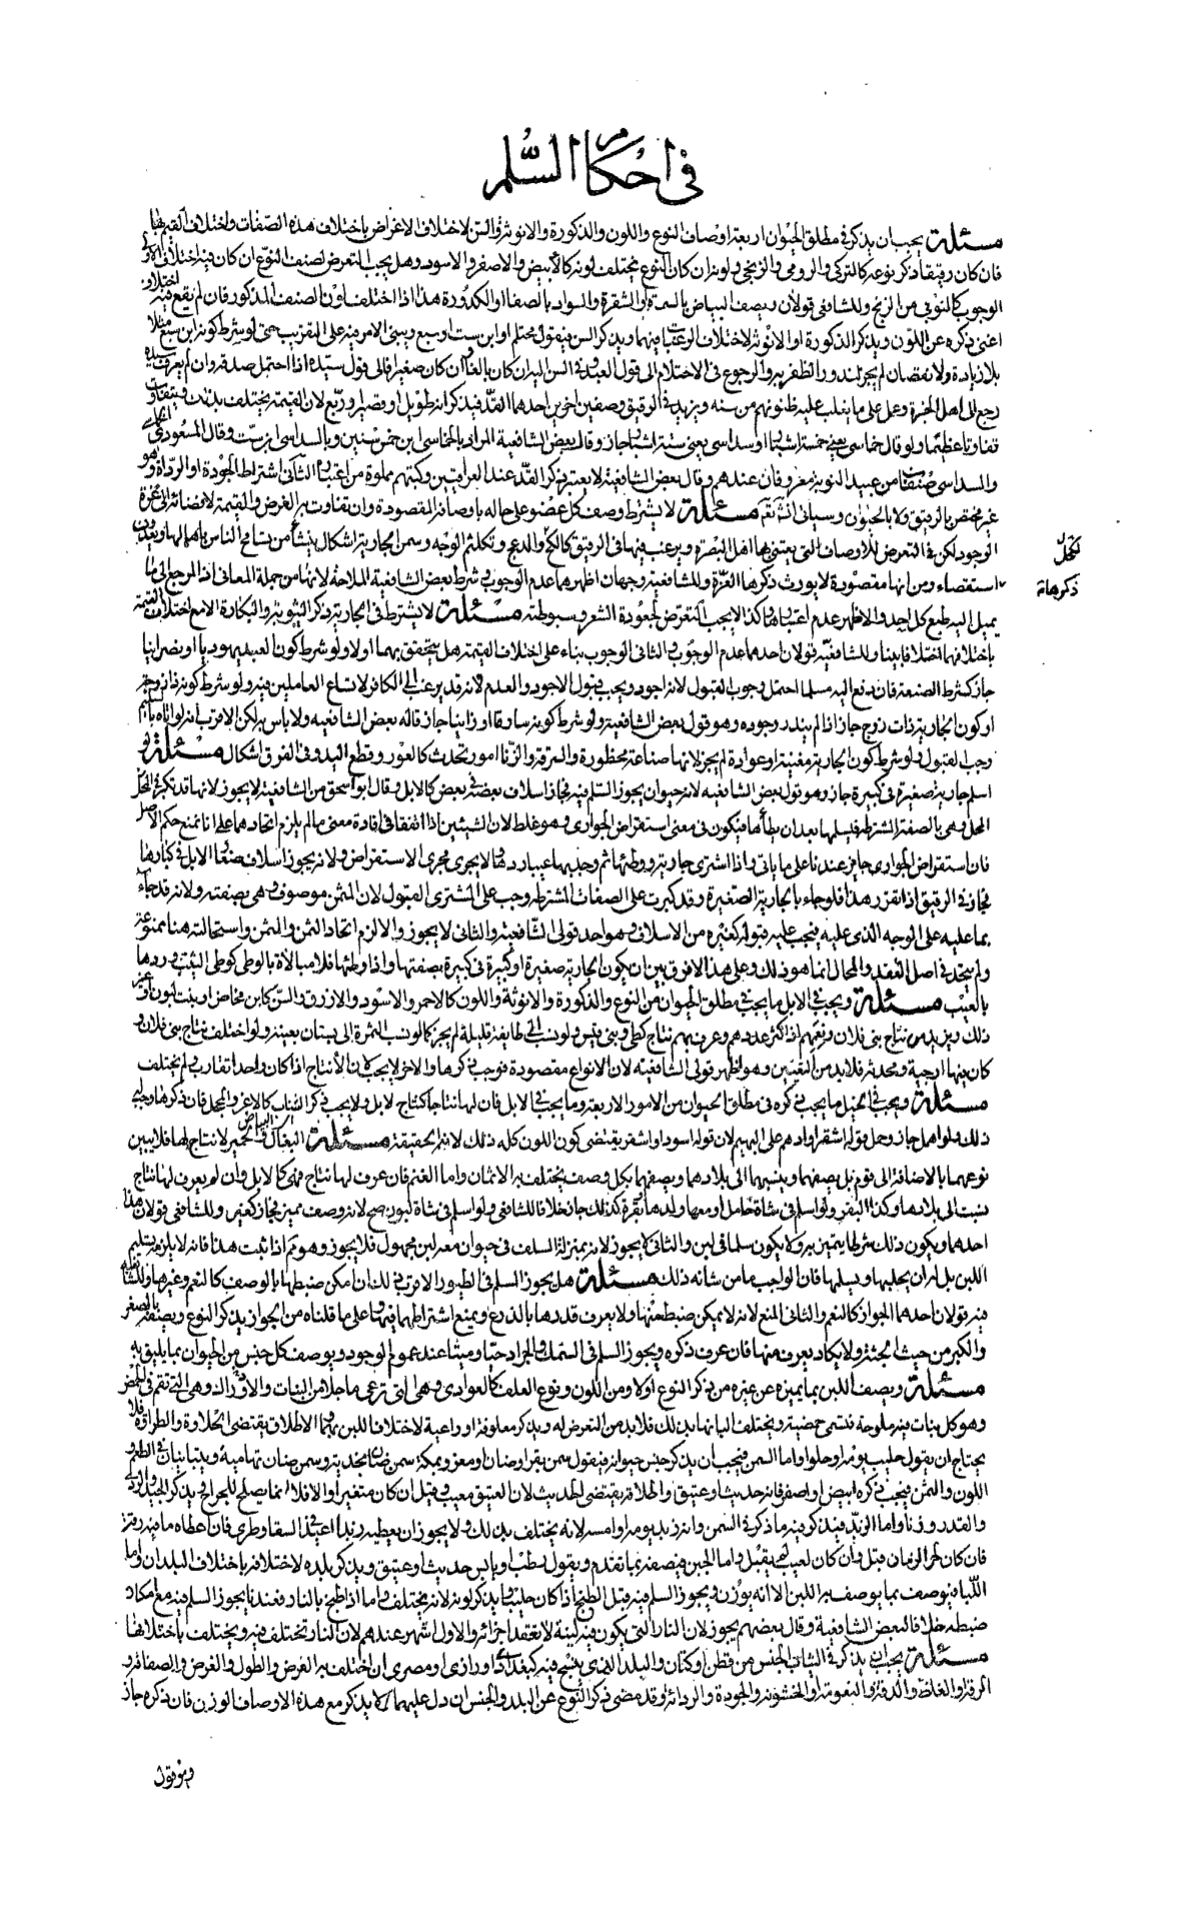 في احكام السلم
مسئلة يجب ان يذكر في مطلق الحيوان اربعة اوصاف النوع واللون والذكورة والانوثة والسن لاختلاف الاغراض باختلاف هذه الصفات واختلاف القيم بها
فان كان رقيقا ذكر نوعه كالتركي والرومي والزنجي ولونه ان كان النوع مختلف لونه كالابيض والاصفر والاسود وهل يجب التعرض لصنف النوع ان كان فيه اختلاف الاولى
الوجوب كالنوبي من الزنج وللشافعي قولان ويصف البياض بالسمرة او الشقرة والسواد بالصفا او الكدورة هذا اذا اختلف لون الصنف المذكور فان لم يقع فيه اختلاف
اغنى ذكره عن اللون ويذكر الذكورة او الانوثة لاختلاف الرغبات فيهما ويذكر السن فيقول محتلم او ابن ست او سبع ويبنى الامر فيه على التقريب حتى لو شرط كونه ابن سبع مثلا
بلا زيادة ولا نقصان لم يجز لندور الظفر به والرجوع في الاحتلام الى قول العبد وفي السن اليه ان كان بالغا وان كان صغيرا فالى قول سيده اذا احتمل صدقه وان لم يعرف سيده
رجع الى اهل الخبرة وعمل على ما يغلب عليه ظنونهم من سنه ويزيد في الرقيق وصفين اخرين احدهما القد فيذكر انه طويل او قصير او ربع لان القيمة يختلف بذلك ويتفاوت
تفاوتا عظيما ولو قال خماسي يعني خمسة اشبار او سداسي يعني ستة اشبار جاز وقال بعض الشافعية المراد بالخماسي ابن خمس سنين وبالسداسي ابن ست وقال المسعودي الخماسي
والسداسي صنفان من عبيد النوبة معروفان عندهم وقال بعض الشافعية لا يعتبر ذكر القد عند العراقيين وكتبهم مملوة من اعتباره الثاني اشتراط الجودة او الرداة وهو
غير مختص بالرقيق ولا بالحيوان وسياتي انشاء الله تعالى مسئلة لا يشترط وصف كل عضو على حاله باوصافه المقصودة وان تفاوت به الغرض والقيمة لافضائه الى عزة
الوجود لكن في التعرض للاوصاف التي يعتني بها اهل البصر ويرغب فيها في الرقيق كالكحل والدعج وتكلثم الوجه وسمن الجارية اشكال ينشأ من تسامح الناس باهمالها ويعدون ذكرها
استقصاء ومن انها مقصودة لا يورث ذكرها العزة وللشافعية وجهان اظهرهما عدم الوجوب وشرط بعض الشافعية الملاحة لانها من جملة المعاني اذ المرجع الى ما
يميل اليه طبع كل احد والاظهر عدم اعتبارها وكذا لا يجب التعرض لجعودة الشعر وسبوطته مسئلة لا يشترط في الجارية ذكر الثيوبة والبكارة الا مع اختلاف القيمة
باختلافهما اختلافا بينا وللشافعية قولان احدهما عدم الوجوب والثاني الوجوب بناء على اختلاف القيمة هل يتحقق بهما اولا ولو شرط كون العبد يهوديا او نصرانيا
جاز كشرط الصنعة فان دفع اليه مسلما احتمل وجوب القبول لانه اجود ويجب قبول الاجود والعدم لانه قد يرغب الى الكافر لاتساع العاملين فيه ولو شرط كونه ذا زوجة
او كون الجارية ذات زوج جاز اذا لم يندر وجوده وهو قول بعض الشافعية ولو شرط كونه سارقا او زانيا جاز قاله بعض الشافعية ولا باس به لكن الاقرب انه لو اتاه بالسليم
وجب القبول ولو شرط كون الجارية مغنية او عوادة لم يجز لانها صناعة محظورة والسرقة والزنا امور تحدث كالعور وقطع اليد وفي الفرق اشكال مسئلة لو
اسلم جارية صغيرة في كبيرة جاز وهو قول بعض الشافعية لانه حيوان يجوز السلم فيه فجاز اسلاف بعضه في بعض كالابل وقال ابو اسحق من الشافعية لا يجوز لانها قد تكبر في المحل
المحل وهي بالصفة المشترطة فيسلمها بعد ان يطأها فيكون في معنى استقراض الجواري وهو غلط لان الشيئين اذا اتفقا في افادة معنى ما لم يلزم اتحادهما على انا نمنع حكم الاصل
فان استقراض الجواري جايز عندنا على ما ياتي واذا اشترى جارية ووطئها ثم وجد بها عيبا ردها ولا يجري مجرى الاستقراض ولانه يجوز اسلاف صغار الابل في كبارها
فجاز في الرقيق اذا تقرر هذا فلو جاء بالجارية الصغيرة وقد كبرت على الصفات المشترطة وجب على المشتري القبول لان المثمن موصوف وهي بصفته ولانه قد جاء
بما عليه على الوجه الذي عليه فيجب عليه قبوله كغيره من الاسلاف وهو احد قولي الشافعية والثاني لا يجوز والا لزم اتحاد الثمن والمثمن واستحالته هنا ممنوعة
ولم يتحد في اصل العقد والمحال انما هو ذلك وعلى هذا لا فرق بين ان يكون الجارية صغيرة او كبيرة في كبيرة بصفتها واذا وطئها فلا مبالاة بالوطي كوطي الثيب وردها
بالعيب مسئلة ويجب في الابل ما يجب في مطلق الحيوان من النوع والذكورة والانوثة واللون كالاحمر والاسود والازرق والسن كابن مخاض او بنت لبون او غير
ذلك ويزيد من نتاج بني فلان ونعمهم اذا كثر عددهم وعرف بهم نتاج كطي وبني قيس ولو نسب الى طايفة قليلة لم يجز كما لو نسب الثمرة الى بستان بعينه ولو اختلف نتاج بني فلان و
كان فيها ارحبية ومجيدية فلا بد من التعيين وهو اظهر قولي الشافعية لان الانواع مقصودة فوجب ذكرها والاخر لا يجب لان الانتاج اذا كان واحدا تقارب ولم يختلف
مسئلة ويجب في الخيل ما يجب ذكره في مطلق الحيوان من الامور الاربعة وما يجب في الابل فان لها نتاجا كنتاج الابل ولا يجب ذكر الشيات كالاغر والمحجل فان ذكرها وجب له
ذلك ولو اهمل جاز وحمل قوله اشقر او ادهم على البهيم لان قوله اسود او اشقر يقتضي كون اللون كله ذلك لانه الحقيقة مسئلة البغال والحمير لا نتاج لها فلا يبين
نوعهما بالاضافة الى قوم بل يصفها وينسبها الى بلادها ويصفها بكل وصف يختلف به الاثمان واما الغنم فان عرف لها نتاج فهي كالابل وان لم يعرف لها نتاج
نسبت الى بلادها وكذا البقر ولو اسلم في شاة حامل او معها ولدها او بقرة كذلك جاز خلافا للشافعي ولو اسلم في شاة لبون صح لانه وصف مميز فجاز كغيره وللشافعي قولان هذا
احدهما ويكون ذلك شرطا يتميز به ولا يكون سلما في لبن والثاني لا يجوز لانه بمنزلة السلف في حيوان معه لبن مجهول فلا يجوز وهو ممنوع اذا ثبت هذا فانه لا يلزمه تسليم
اللبن بل له ان يحلبها ويسلمها فان الواجب ما من شانه ذلك مسئلة هل يجوز السلم في الطيور الاقرب ذلك ان امكن ضبطها بالوصف كالنعم وغيرها وللشافعي
فيه قولان احدهما الجواز كالنعم والثاني المنع لانه لا يمكن ضبط سنها ولا يعرف قدرها بالذرع ويمنع اشتراطهما فيها وعلى ما قلناه من الجواز يذكر النوع ويصفه بالصغر
والكبر من حيث الجثة ولا يكاد يعرف سنها فان عرف ذكره ويجوز السلم في السمك والجراد حيا وميتا عند عموم الوجود ويوصف كل جنس من الحيوان بما يليق به
مسئلة ويصف اللبن بما يميزه عن غيره من ذكر النوع اولا ومن اللون ونوع العلف كالعوادي وهي التي ترعى ما حلا من النبات والاوراك وهي التي تقيم في الحمض
وهو كل نبات فيه ملوحة فتسمى حمضية ويختلف البانها بذلك فلا بد من التعرض له ويذكر معلوفة او راعية لاختلاف اللبن بهما والاطلاق يقتضي الحلاوة والطراوة فلا
يحتاج ان يقول حليب يومه او حلوا واما السمن فيجب ان يذكر جنس حيوانه فيقول سمن بقر او ضان او معز وبمكة سمن ضان نجدية وسمن ضان تهامية ويتباينان في الطعم و
اللون والثمن فيجب ذكره ابيض او اصفر فانه حديث او عتيق واطلاقه يقتضي الحديث لان العتيق معيب وقيل ان كان متغيرا والا فلا انما يصلح للجراح ويذكر الجيد والردي
والقدر وزنا واما الزبد فيذكر فيه ما ذكر في السمن وانه زبد يومه او امسه لانه يختلف بذلك ولا يجوز ان يعطيه زبدا اعيد في السقا وطري فان اعطاه ما فيه رقة
فان كان لحر الزمان قبل وان كان لعيب لم يقبل واما الجبن فيصفه بما تقدم ويقول رطب او يابس حديث او عتيق ويذكر بلده لاختلافه باختلاف البلدان واما
اللبأ فيوصف بما يوصف به اللبن الا انه يوزن ويجوز السلم فيه قبل الطبخ اذا كان حليبا يذكر لونه لانه مختلف واما اذا طبخ بالنار فعندنا يجوز السلم فيه مع امكان
ضبطه خلافا لبعض الشافعية وقال بعضهم يجوز لان النار التي يكون فيه لينة لا يعقد اجزائه والاول اشهر عندهم لان النار تختلف فيه ويختلف باختلافها
مسئلة يجب ان يذكر في الثياب الجنس من قطن او كتان والبلد الذي ينسج فيه كبغدادي او رازي او مصري ان اختلف به الغرض والطول والعرض والصفاقة و
الرقة والغلظ والدقة والنعومة او الخشونة والجودة والرداءة وقد مضى ذكر النوع عن البلد والجنس ان دل عليهما ولا يذكر مع هذه الاوصاف الوزن فان ذكره جاز
ذكرها